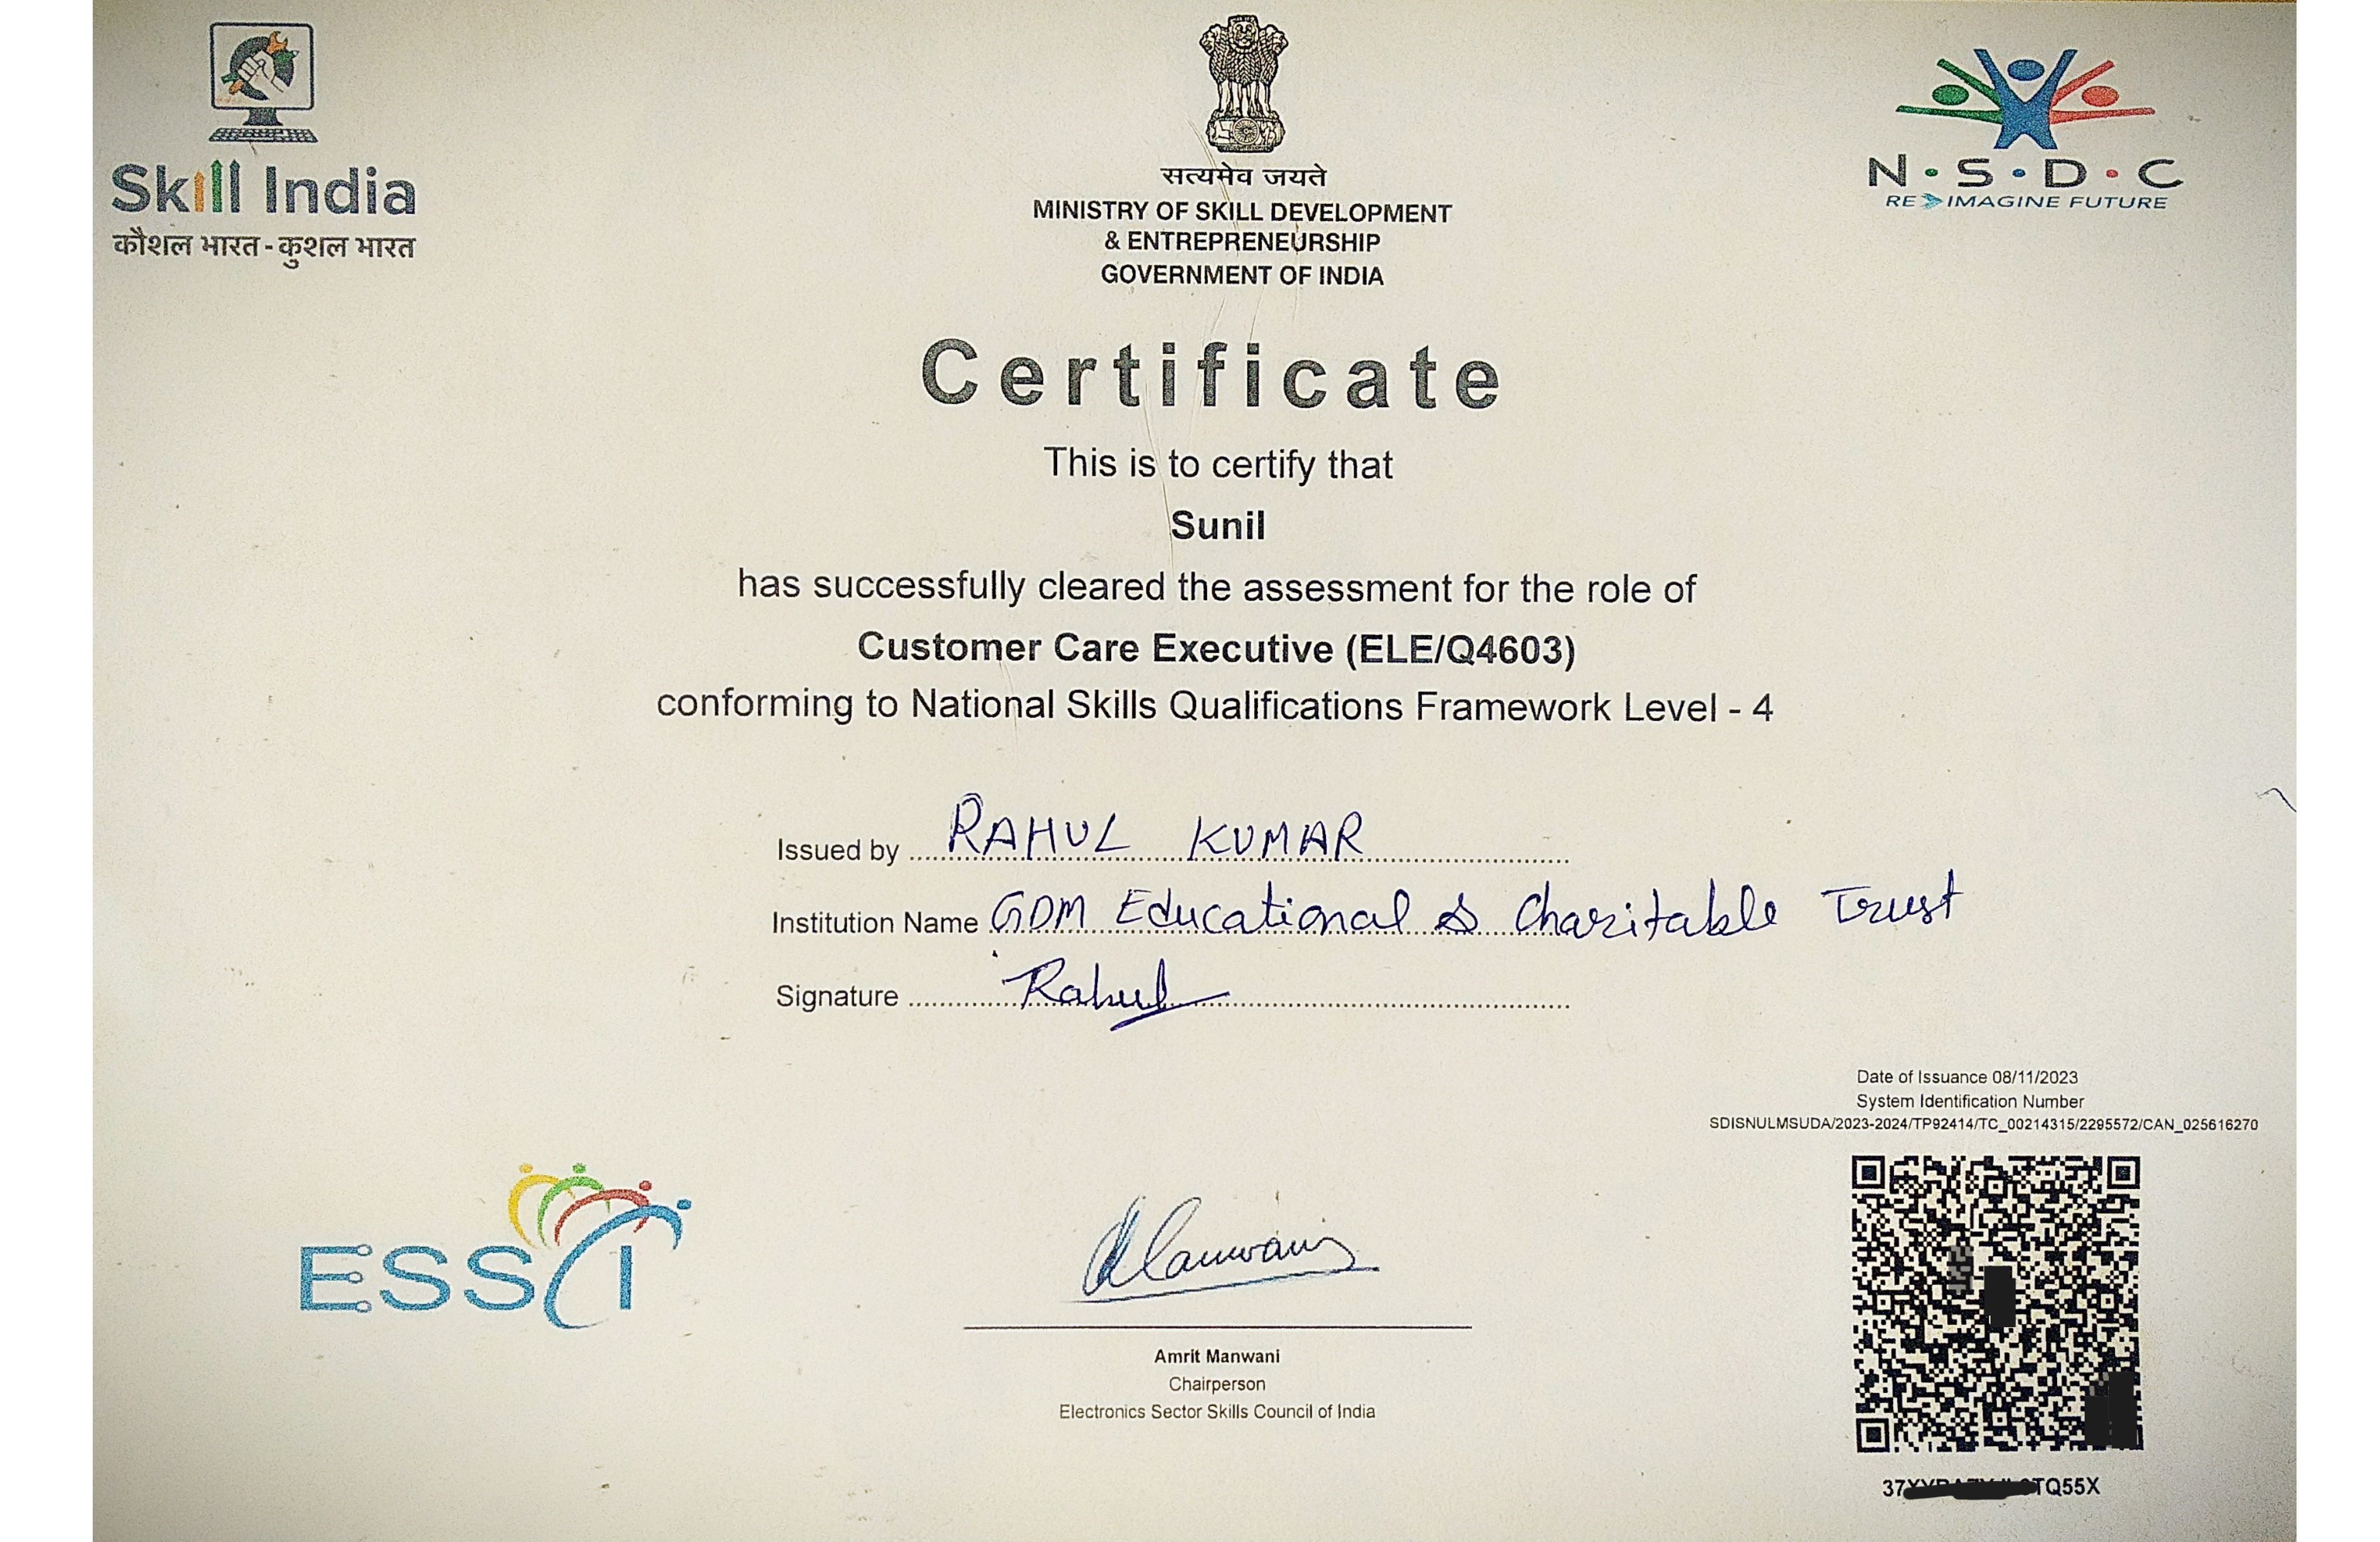 Skill India
कौशल भारत - कुशल भारत
सत्यमेव जयते
MINISTRY OF SKILL DEVELOPMENT
& ENTREPRENEURSHIP
GOVERNMENT OF INDIA
N·S·D·C
RE IMAGINE FUTURE
Certificate
This is to certify that
Sunil
has successfully cleared the assessment for the role of
Customer Care Executive (ELE/Q4603)
conforming to National Skills Qualifications Framework Level - 4
Issued by RAHUL KUMAR
Institution Name GDM Educational & Charitable Trust
Signature Rahul
Date of Issuance 08/11/2023
System Identification Number
SDISNULMSUDA/2023-2024/TP92414/TC_00214315/2295572/CAN_025616270
ESSCI
Amrit Manwani
Chairperson
Electronics Sector Skills Council of India